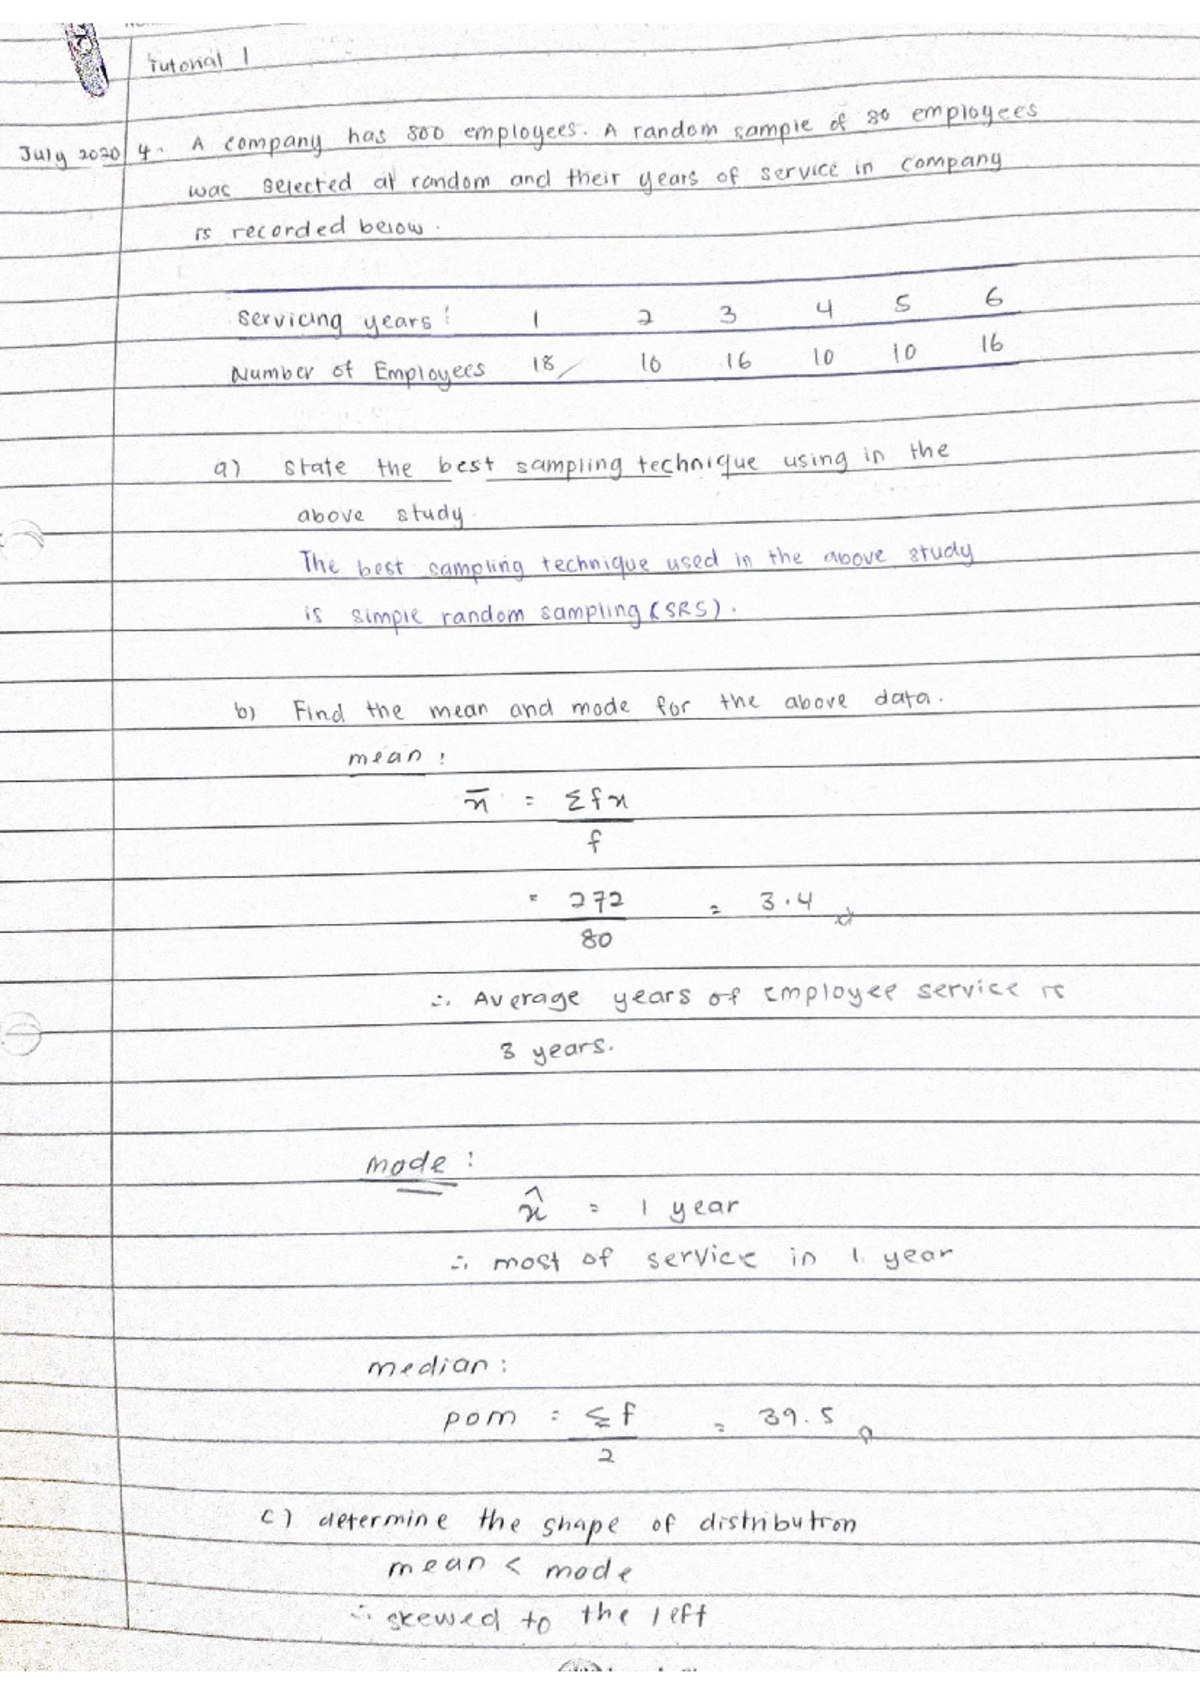 Tutorial 1
July 2020 4. A company has 800 employees. A random sample of 80 employees
was selected at random and their years of service in company
is recorded below.
Servicing years: 1 2 3 4 5 6
Number of Employees 18 10 16 10 10 16
a) State the best sampling technique using in the
above study.
The best sampling technique used in the above study
is simple random sampling (SRS).
b) Find the mean and mode for the above data.
mean:
x̄ = Σfx
f
= 272 = 3.4
80
∴ Average years of employee service is
3 years.
Mode:
x̂ = 1 year
∴ most of service in 1 year
median:
pom = Σf = 39.5
2
c) determine the shape of distribution
mean < mode
∴ skewed to the left